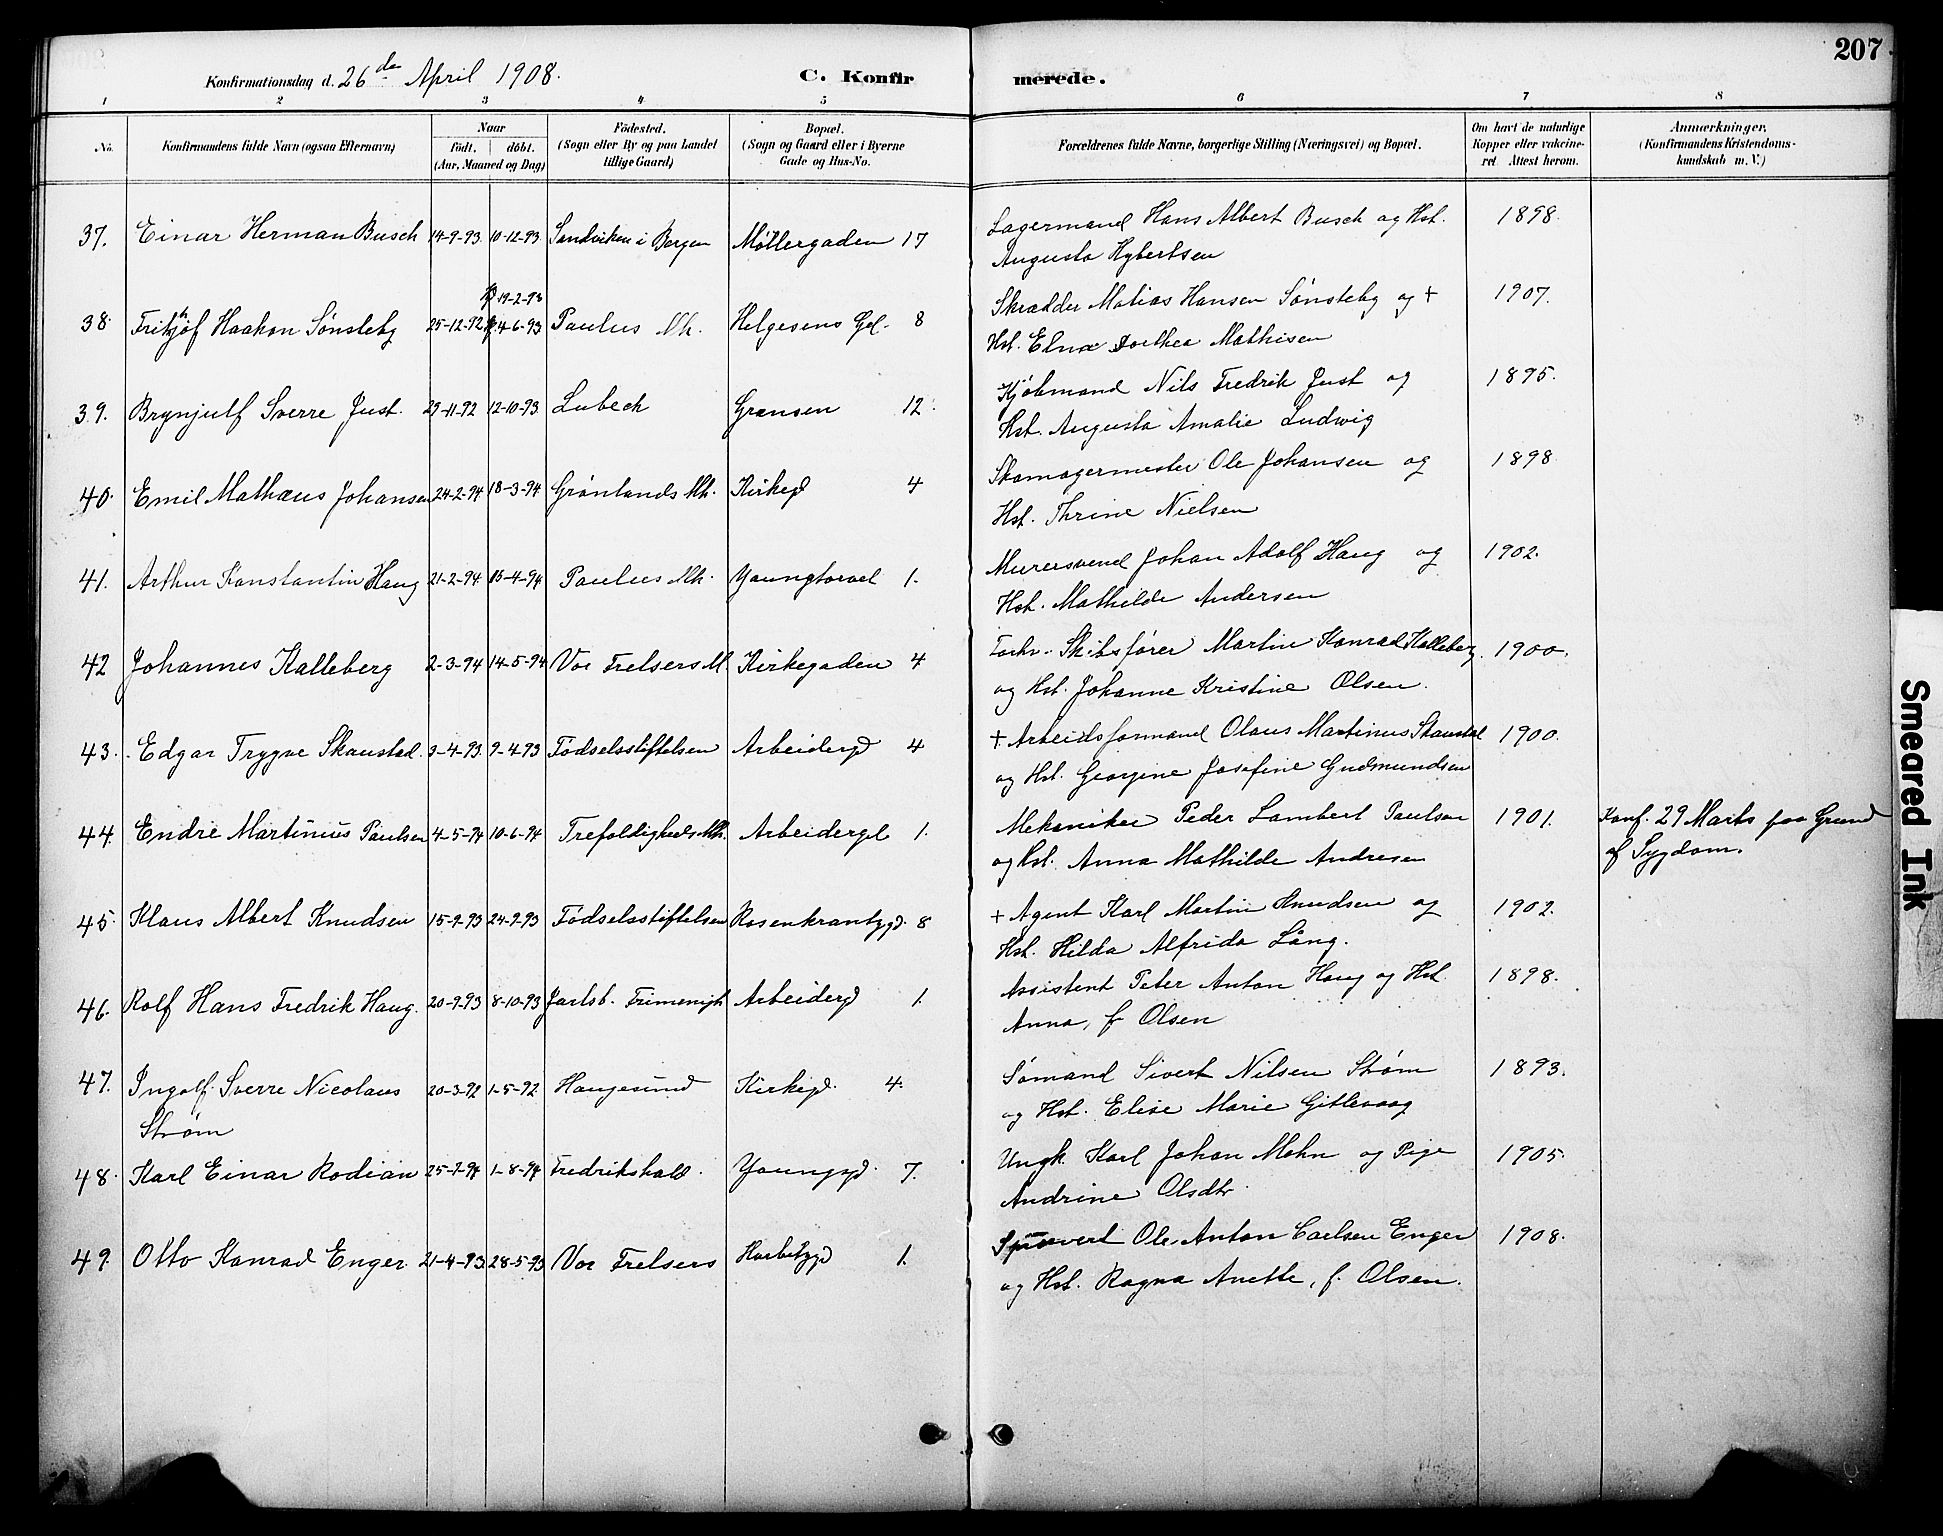 207
Konfirmationsdag d. 26de April 1908.
C. Konfirmerede.
1 2 3 4 5 6 7 8
No.
Konfirmandens fulde Navn (ogsaa Efternavn)
Naar
født. døbt.
(Aar, Maaned og Dag)
Fødested.
(Sogn eller By og paa Landet
tillige Gaard)
Bopæl.
(Sogn og Gaard eller i Byerne
Gade og Hus-No.
Forældrenes fulde Navne, borgerlige Stilling (Næringsvei) og Bopæl.
Om havt de naturlige
Kopper eller vakcine-
ret. Attest herom.
Anmærkninger.
(Konfirmandens Kristendoms-
kundskab m. V.)
37. Einar Herman Busch 14-9-93 10-12-93 Sandviken i Bergen Møllergaden 17 Lagermand Hans Albert Busch og Hst. 1898.
Augusta Hybertsen
19-2-93
38. Frithjof Haakon Sønsteby 25-12-92 4-6-93 Paulus Mh. Helgesens Gd. 8 Skrædder Matias Hansen Sønsteby og + 1907.
Hst. Elna Dorthea Mathisen
39. Brynjulf Sverre Just. 29-11-92 12-10-93 Lubeck Grænsen 12. Kjøbmand Nils Fredrik Just og 1895.
Hst. Augusta Amalie Ludwig
40. Emil Mathæus Johansen 24-2-94 18-3-94 Grønlands Mh. Kirkegd 4 Skomagermester Ole Johansen og 1898
Hst. Thrine Nielsen
41. Arthur Konstantin Haug 21-2-94 15-4-94 Paulus Mh. Youngtorvet 1. Murersvend Johan Adolf Haug og 1902.
Hst. Mathilde Andersen
42 Johannes Kalleberg 2-3-94 14-5-94 Vor Frelsers M. Kirkegaden 4 Forhv. Skibsfører Martin Konrad Kalleberg 1900.
og Hst. Johanne Kristine Olsen.
43. Edgar Trygve Skaustad. 3-4-93 9-4-93 Fødselsstiftelsen Arbeidergd 4 + Arbeidsformand Olaus Martinus Skaustad 1900.
og Hst. Georgine Josefine Gudmundsen
44. Endre Martinius Paulsen 4-5-94 10-6-94 Trefoldigheds Mh. Arbeidergd 1. Mekaniker Peder Lambert Paulsen 1901. Konf. 29 Marts paa Grund
og Hst. Anna Mathilde Andresen af Sygdom.
45. Klaus Albert Knudsen 15-9-93 24-9-93 Fødselsstiftelsen Rosenkrantzgd. 8 + Agent Karl Martin Knudsen og 1902.
Hst. Hilda Alfrida Lång.
46. Rolf Hans Fredrik Haug. 20-9-93 8-10-93 Jarlsb. Frimenigh. Arbeidergd 1. Assistent Peter Anton Haug og Hst. 1898.
Anna, f. Olsen
47. Ingolf Sverre Nicolaus 20-3-92 1-5-92 Haugesund Kirkegd. 4. Sømand Sivert Nilsen Strøm 1893.
Strøm og Hst. Elise Marie Gitlevaag
48. Karl Einar Rodian 25-7-94 1-8-94 Fredrikshald. Younggd. 7. Ungk. Karl Johan Mohn og Pige 1905.
Andrine Olsdtr.
49. Otto Konrad Enger. 21-4-93 28-5-93 Vor Frelsers Harbitzgd 1. Ole Anton Carlsen Enger 1908.
og Hst. Ragna Anette, f. Olsen.
Smeared Ink